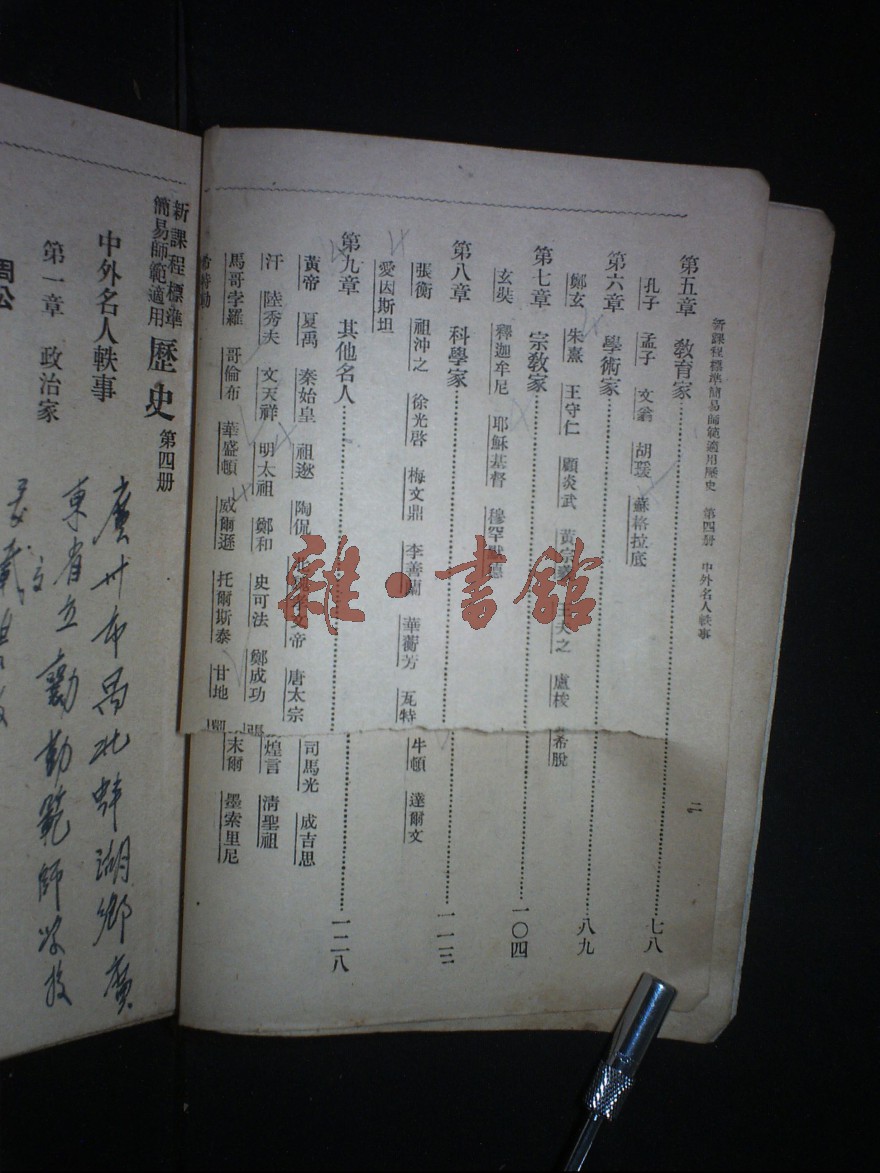 新課程標準簡易師範適用歷史 第四册 中外名人軼事
二
第五章 教育家……七八
孔子 孟子 文翁 胡瑗 蘇格拉底
第六章 學術家……八九
鄭玄 朱熹 王守仁 顧炎武 黃宗羲 王夫之 盧梭 希脫
第七章 宗教家……一〇四
玄奘 釋迦牟尼 耶穌基督 穆罕默德
第八章 科學家……一一三
張衡 祖沖之 徐光啓 梅文鼎 李善蘭 華蘅芳 瓦特 牛頓 達爾文
愛因斯坦
第九章 其他名人……一二八
黃帝 夏禹 秦始皇 祖逖 陶侃 文帝 唐太宗 司馬光 成吉思
汗 陸秀夫 文天祥 明太祖 鄭和 史可法 鄭成功 張煌言 清聖祖
馬哥孛羅 哥倫布 華盛頓 威爾遜 托爾斯泰 甘地 凱末爾 墨索里尼
希特勒
雜·書館
新課程標準
簡易師範適用
歷史 第四册
中外名人軼事
第一章 政治家
周公
廣州市禺北蚌湖鄉廣
東省立勷勤範師學校